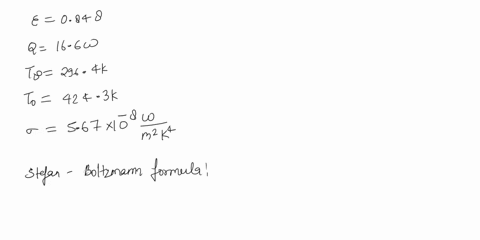 ε = 0.848
Q = 16.6W
T∞ = 296.4K
To = 424.3K
σ = 5.67 × 10^-8 W/m²K⁴
Stefan - Boltzmann formula!